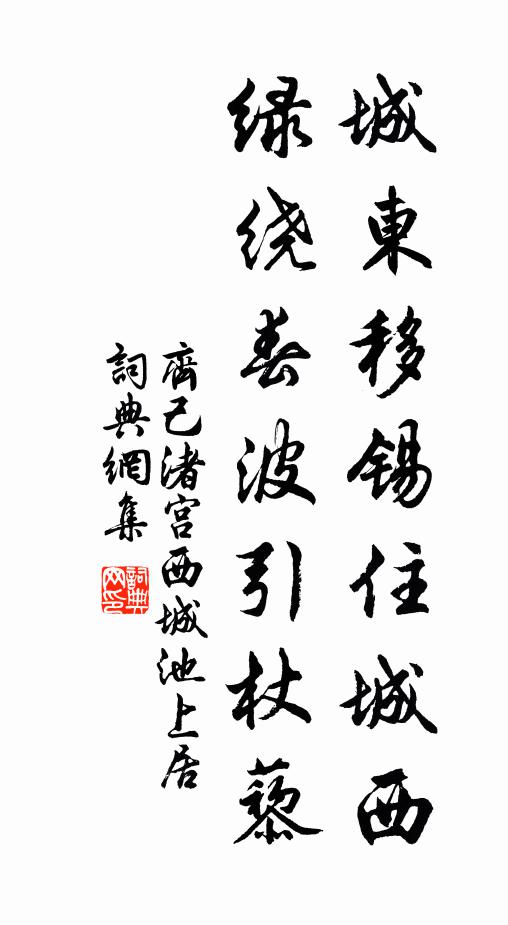 城東移錫住城西
绿绕春波引杖藜
齊己渚宫西城池上居
詞典網集
詞典网印